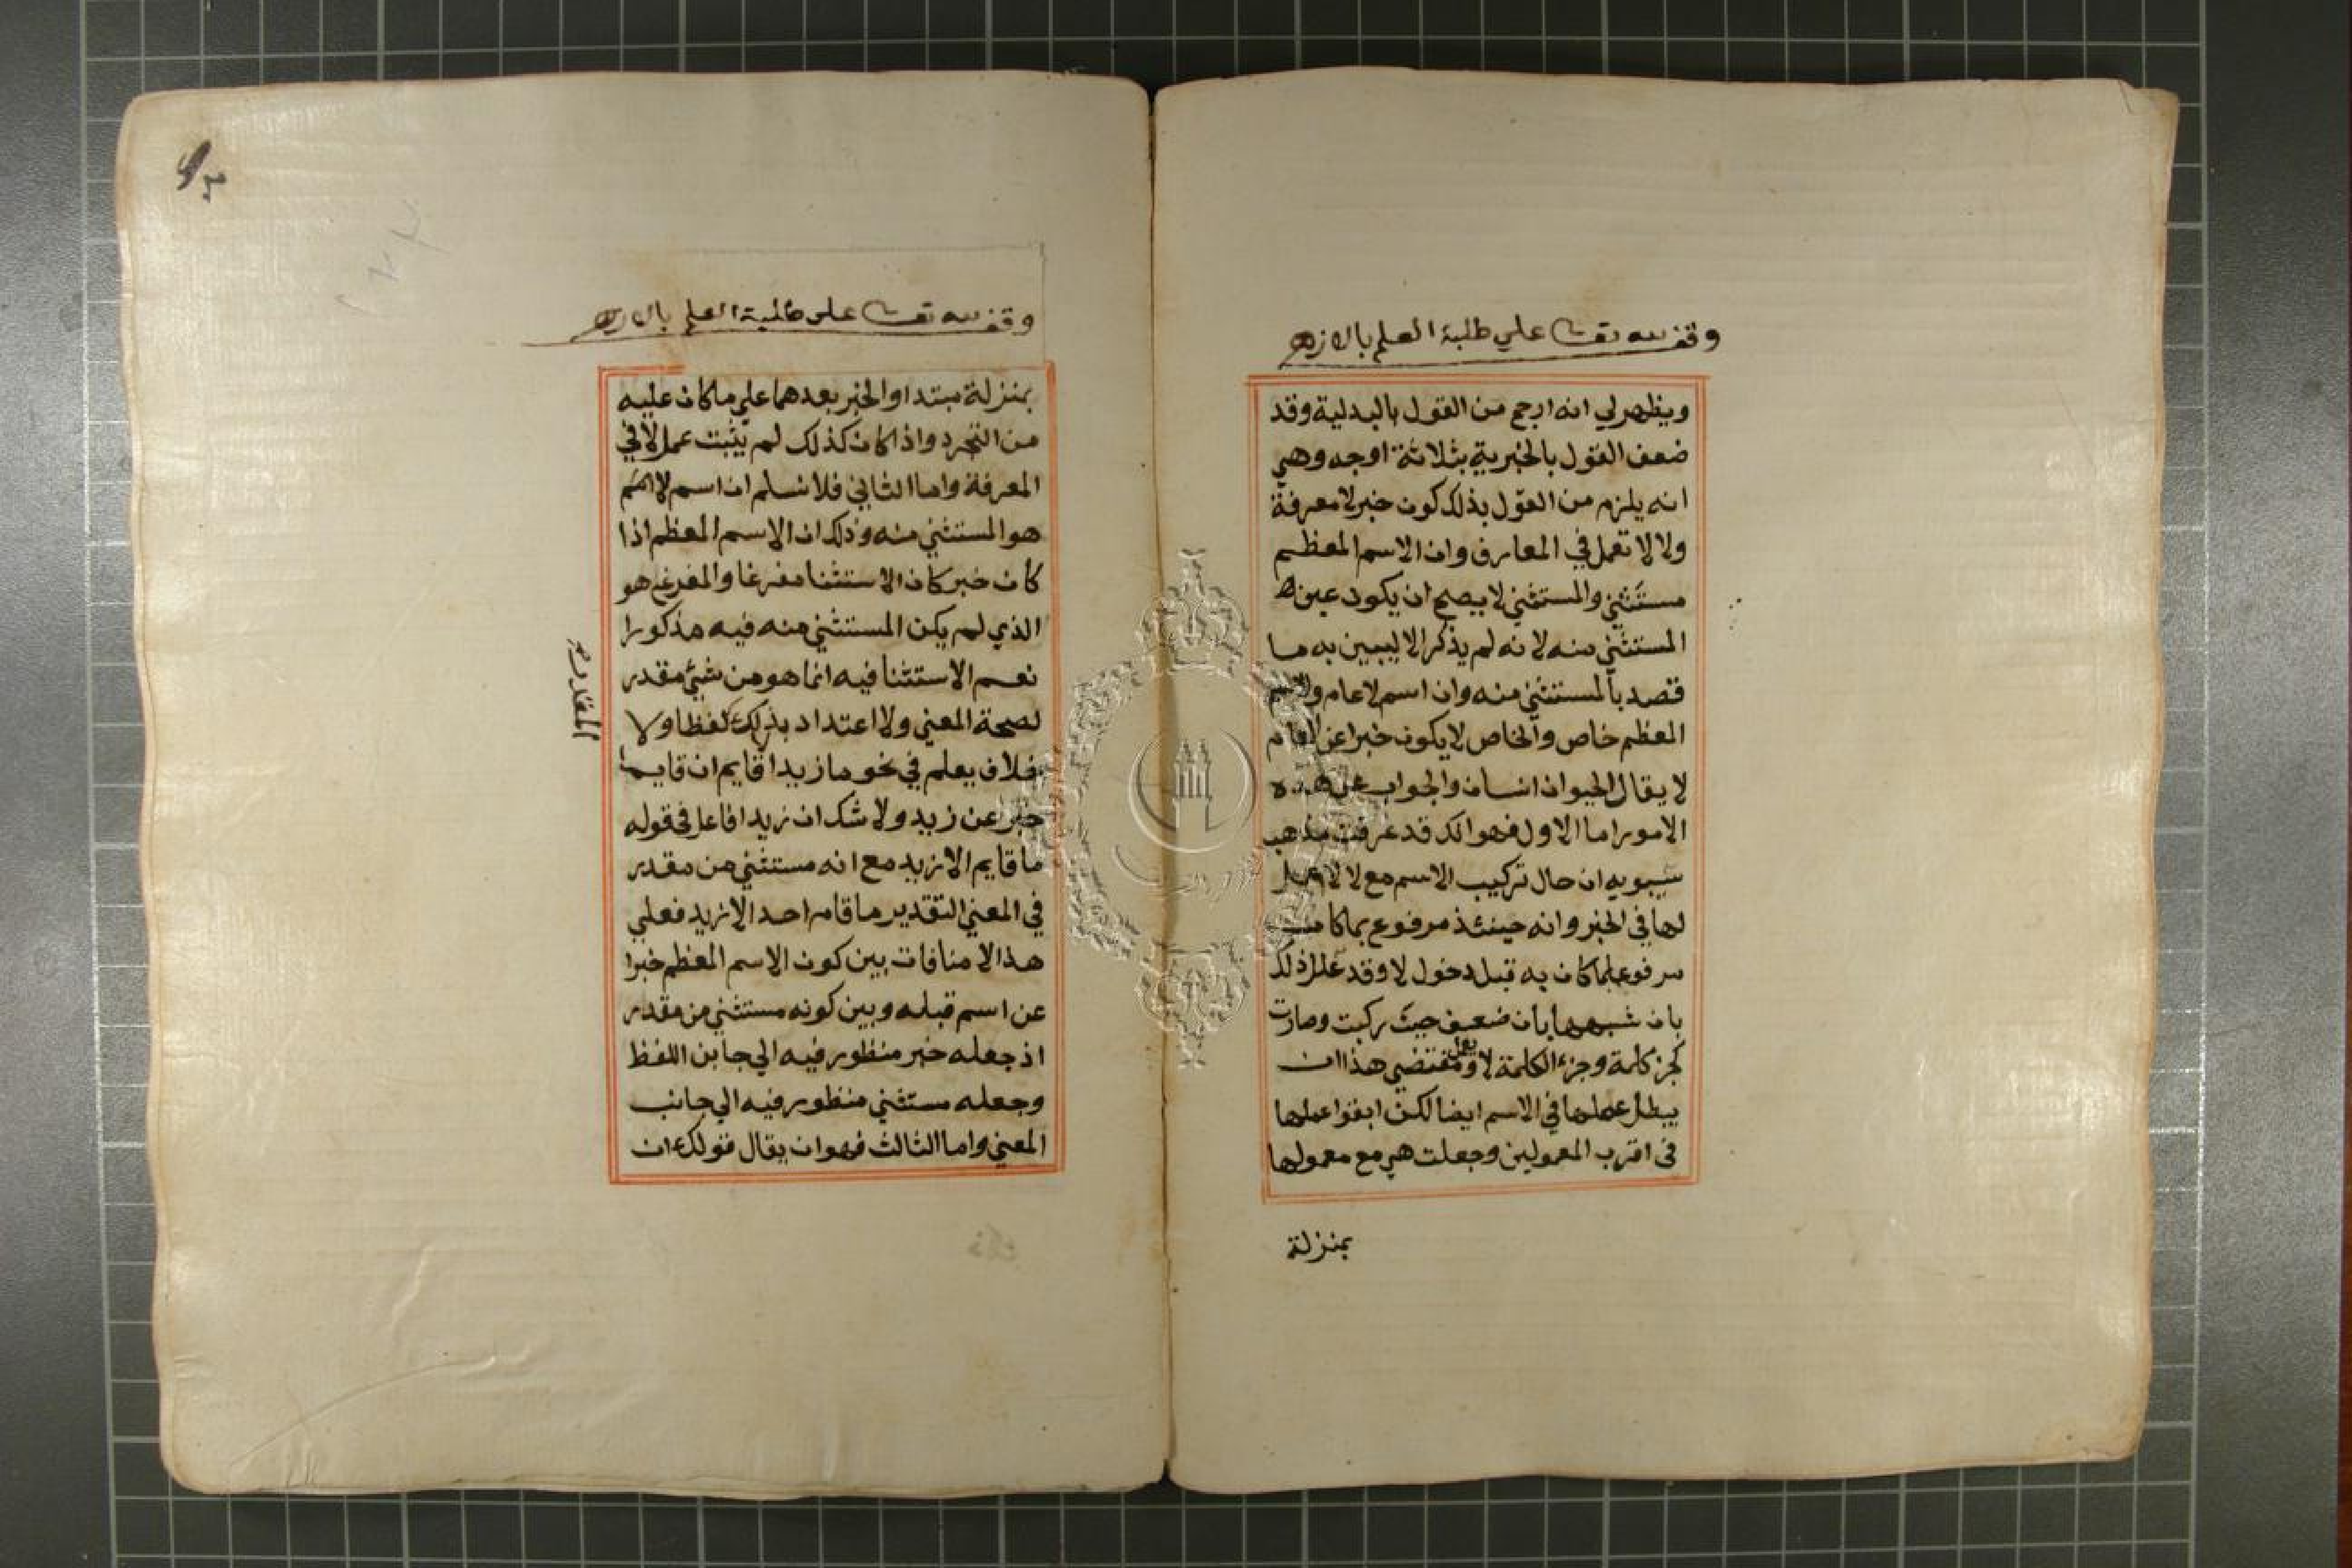 وقف لله تعالى علي طلبة العلم بالازهر
ويظهر لي انه ارجح من القول بالبدلية وقد
ضعف القول بالخبرية بثلاثة اوجه وهي
انه يلزم من القول بذلك كون خبر لا معرفة
ولا لا تعمل في المعارف وان الاسم المعظم
مستثني والمستثني لا يصح ان يكون عين
المستثني منه لانه لم يذكر الا ليبين به ما
قصد بالمستثني منه وان اسم لا عام والاسم
المعظم خاص والخاص لا يكون خبرا عن العام
لا يقال الحيوان انسان والجواب عن هذه
الامور اما الاول فهو انك قد عرفت مذهب
سيبويه ان حال تركيب الاسم مع لا لا عمل
لها في الخبر وانه حينئذ مرفوع بما كان
مرفوعا بما كان به قبل دخول لا وقد علل ذلك
بان شبهها بان ضعف حيث ركبت وصارت
كجزء كلمة وجزء الكلمة لا يعمل ومقتضي هذا ان
يبطل عملها في الاسم ايضا لكن ابقوا عملها
في اقرب المعمولين وجعلت هي مع معمولها
بمنزلة
وقف لله تعالى على طلبة العلم بالازهر
بمنزلة مبتدا والخبر بعدهما علي ما كان عليه
من التجرد واذا كان كذلك لم يثبت عمل لا في
المعرفة واما الثاني فلا نسلم ان اسم لا
هو المستثني منه وذلك ان الاسم المعظم اذا
كان خبر كان الاستثنا مفرغا والمفرغ هو
الذي لم يكن المستثني منه فيه مذكورا
نعم الاستثنا فيه انما هو من شيء مقدر
لصحة المعني ولا اعتداد بذلك لفظا ولا
خلاف يعلم في نحو ما زيد الا قايم ان قايما
خبر عن زيد ولا شك ان زيدا فاعل في قوله
ما قايم الا زيد مع انه مستثني من مقدر
في المعني التقدير ما قام احد الا زيد فعلي
هذا لا منافات بين كون الاسم المعظم خبرا
عن اسم قبله وبين كونه مستثني من مقدر
اذ جعله خبر منظور فيه الي جابن اللفظ
وجعله مستثني منظور فيه الي جانب
المعني واما الثالث فهو ان يقال قولك ان
المقدر